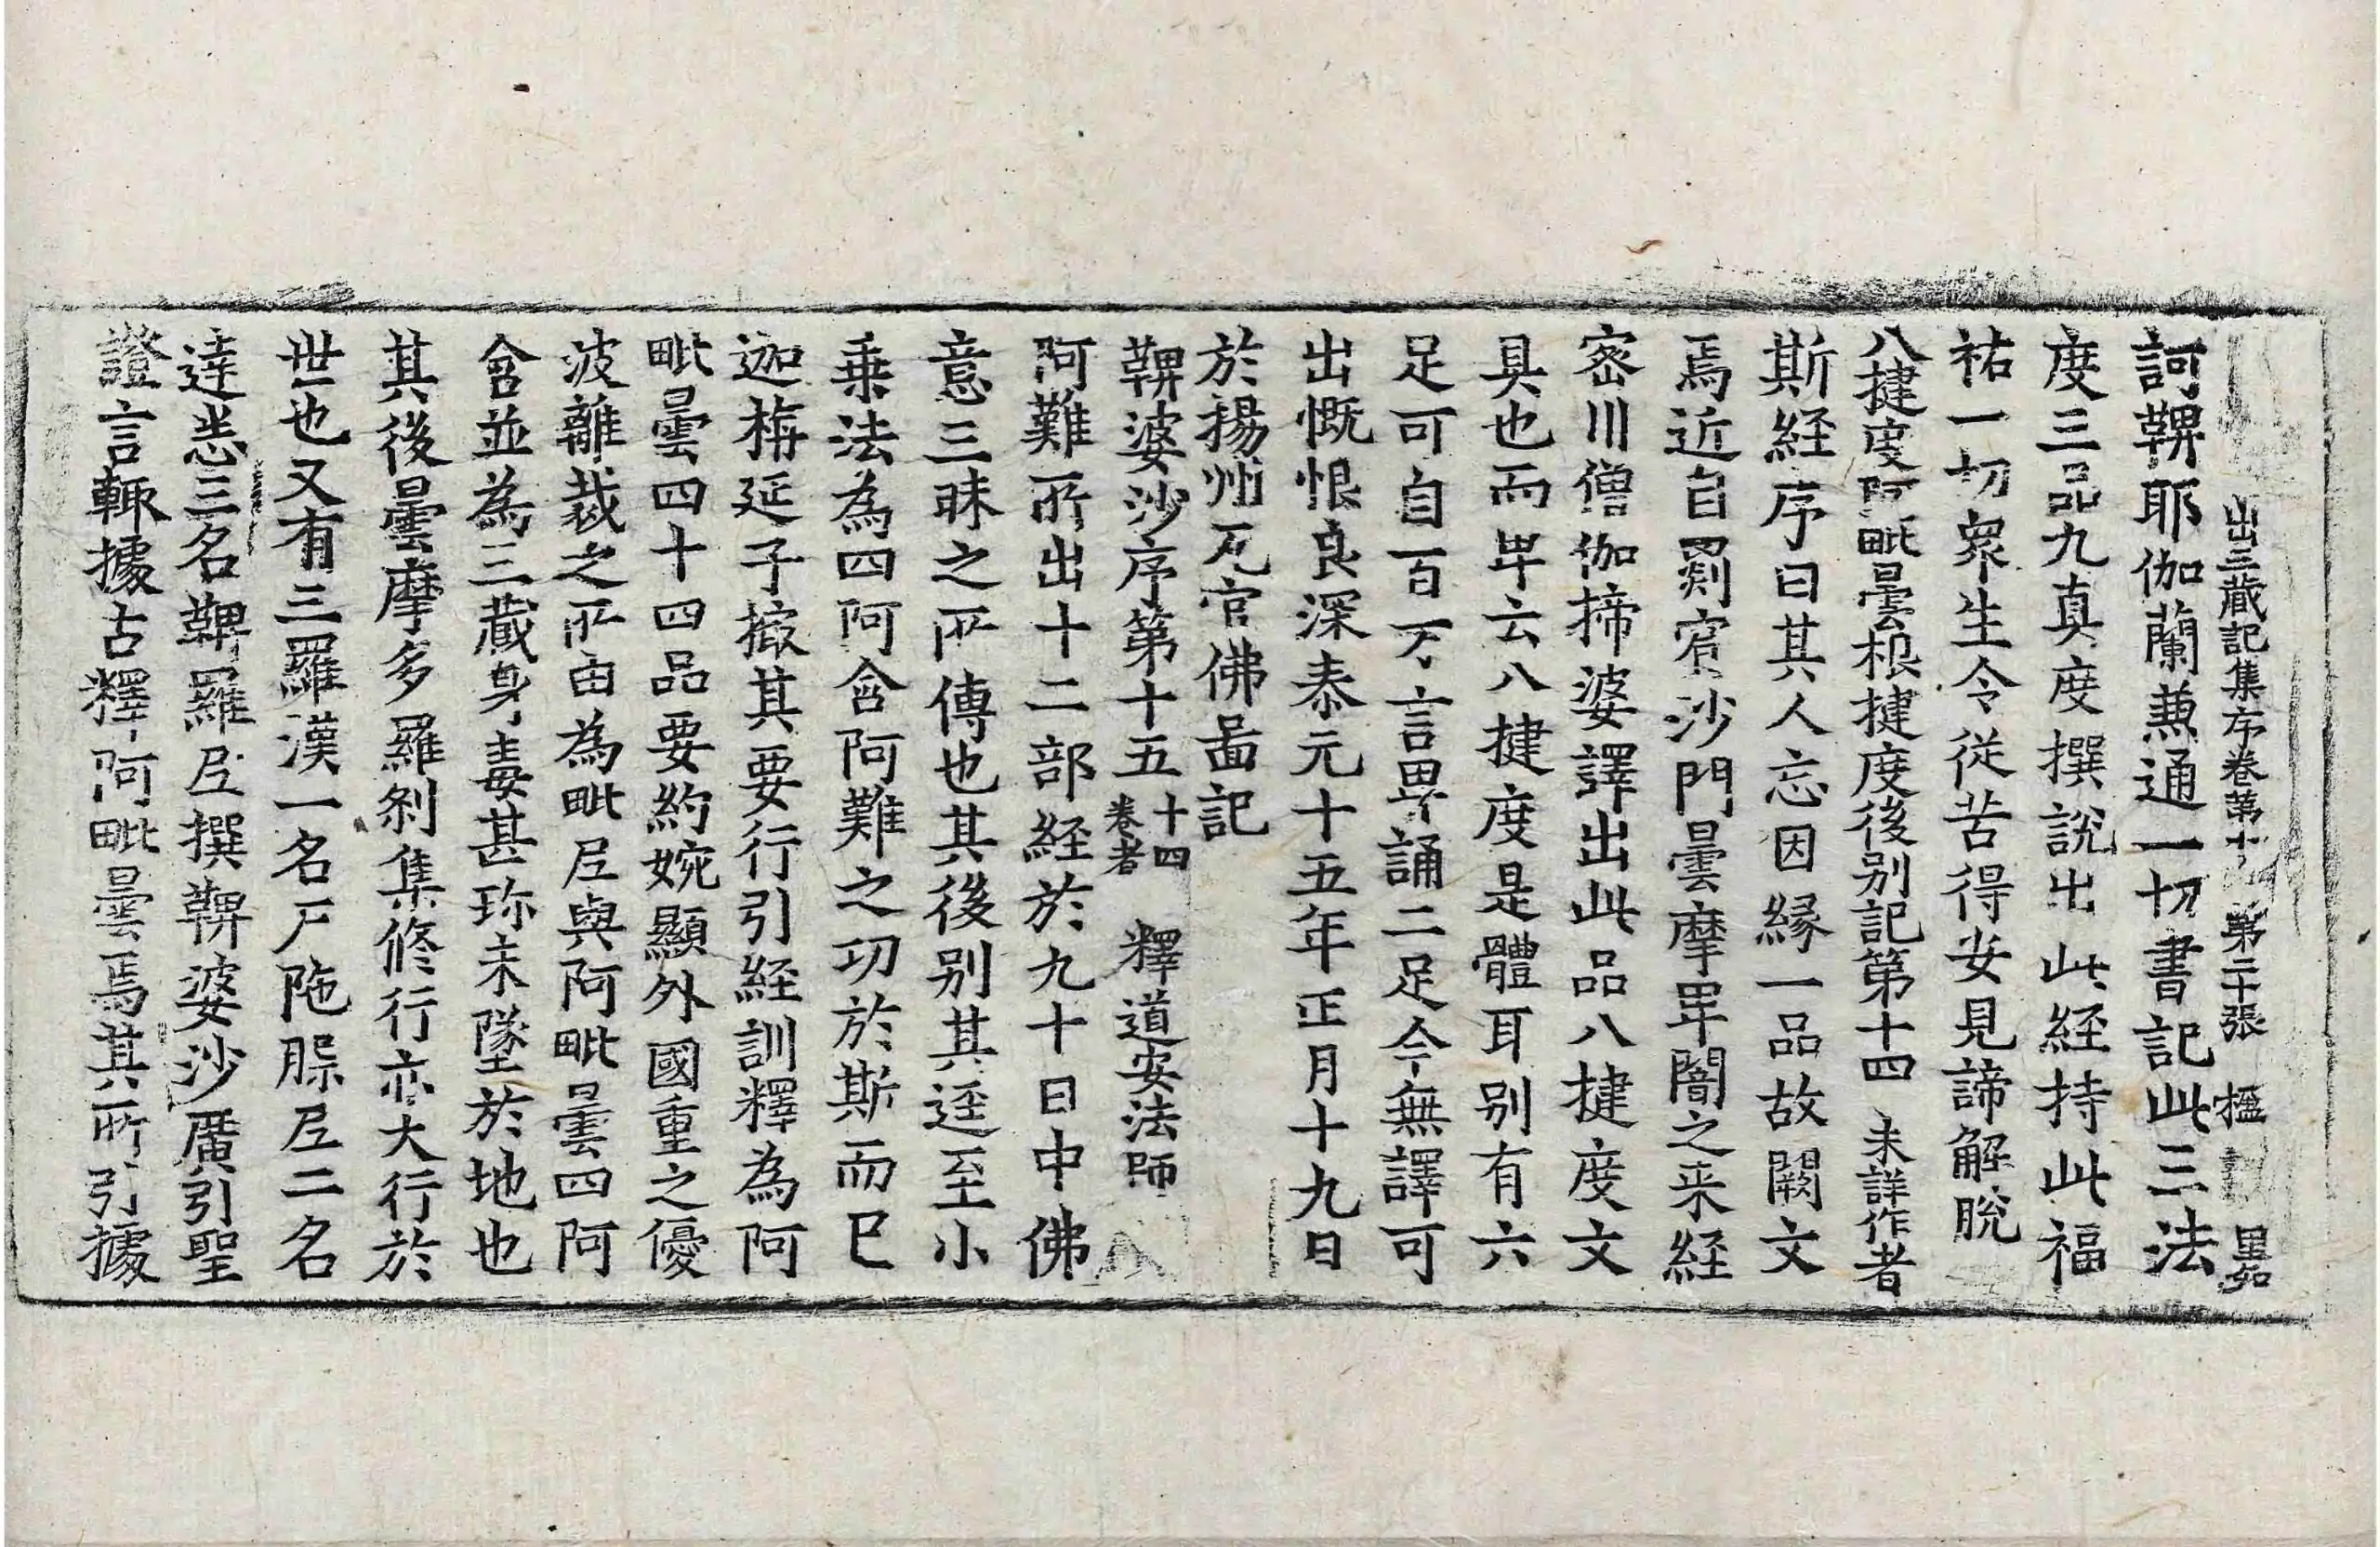 出三藏記集序卷第十 第二十張 楹 墨
訶鞞耶伽蘭兼通一切書記此三法
度三品九真度撰說出此經持此福
祐一切衆生令從苦得安見諦解脫
八揵度阿毗曇根揵度後別記第十四 未詳作者
斯經序曰其人忘因緣一品故闕文
焉近自罽賓沙門曇摩卑闇之来經
密川僧伽揥婆譯出此品八揵度文
具也而卑云八揵度是體耳別有六
足可自百万言卑誦二足今無譯可
出慨恨良深泰元十五年正月十九日
於揚州瓦官佛啚記
鞞婆沙序第十五 十四卷者 釋道安法師
阿難所出十二部經於九十日中佛
意三昧之所傳也其後別其逕至小
乗法為四阿含阿難之功於斯而已
迦栴延子撮其要行引經訓釋為阿
毗曇四十四品要約婉顯外國重之優
波離裁之所由為毗尼與阿毗曇四阿
含並為三藏身毒甚珎未墜於地也
其後曇摩多羅剎集脩行亦大行於
世也又有三羅漢一名尸陁槃尼二名
達悉三名鞞羅尼撰鞞婆沙廣引聖
證言輙據古釋阿毗曇焉其所引據